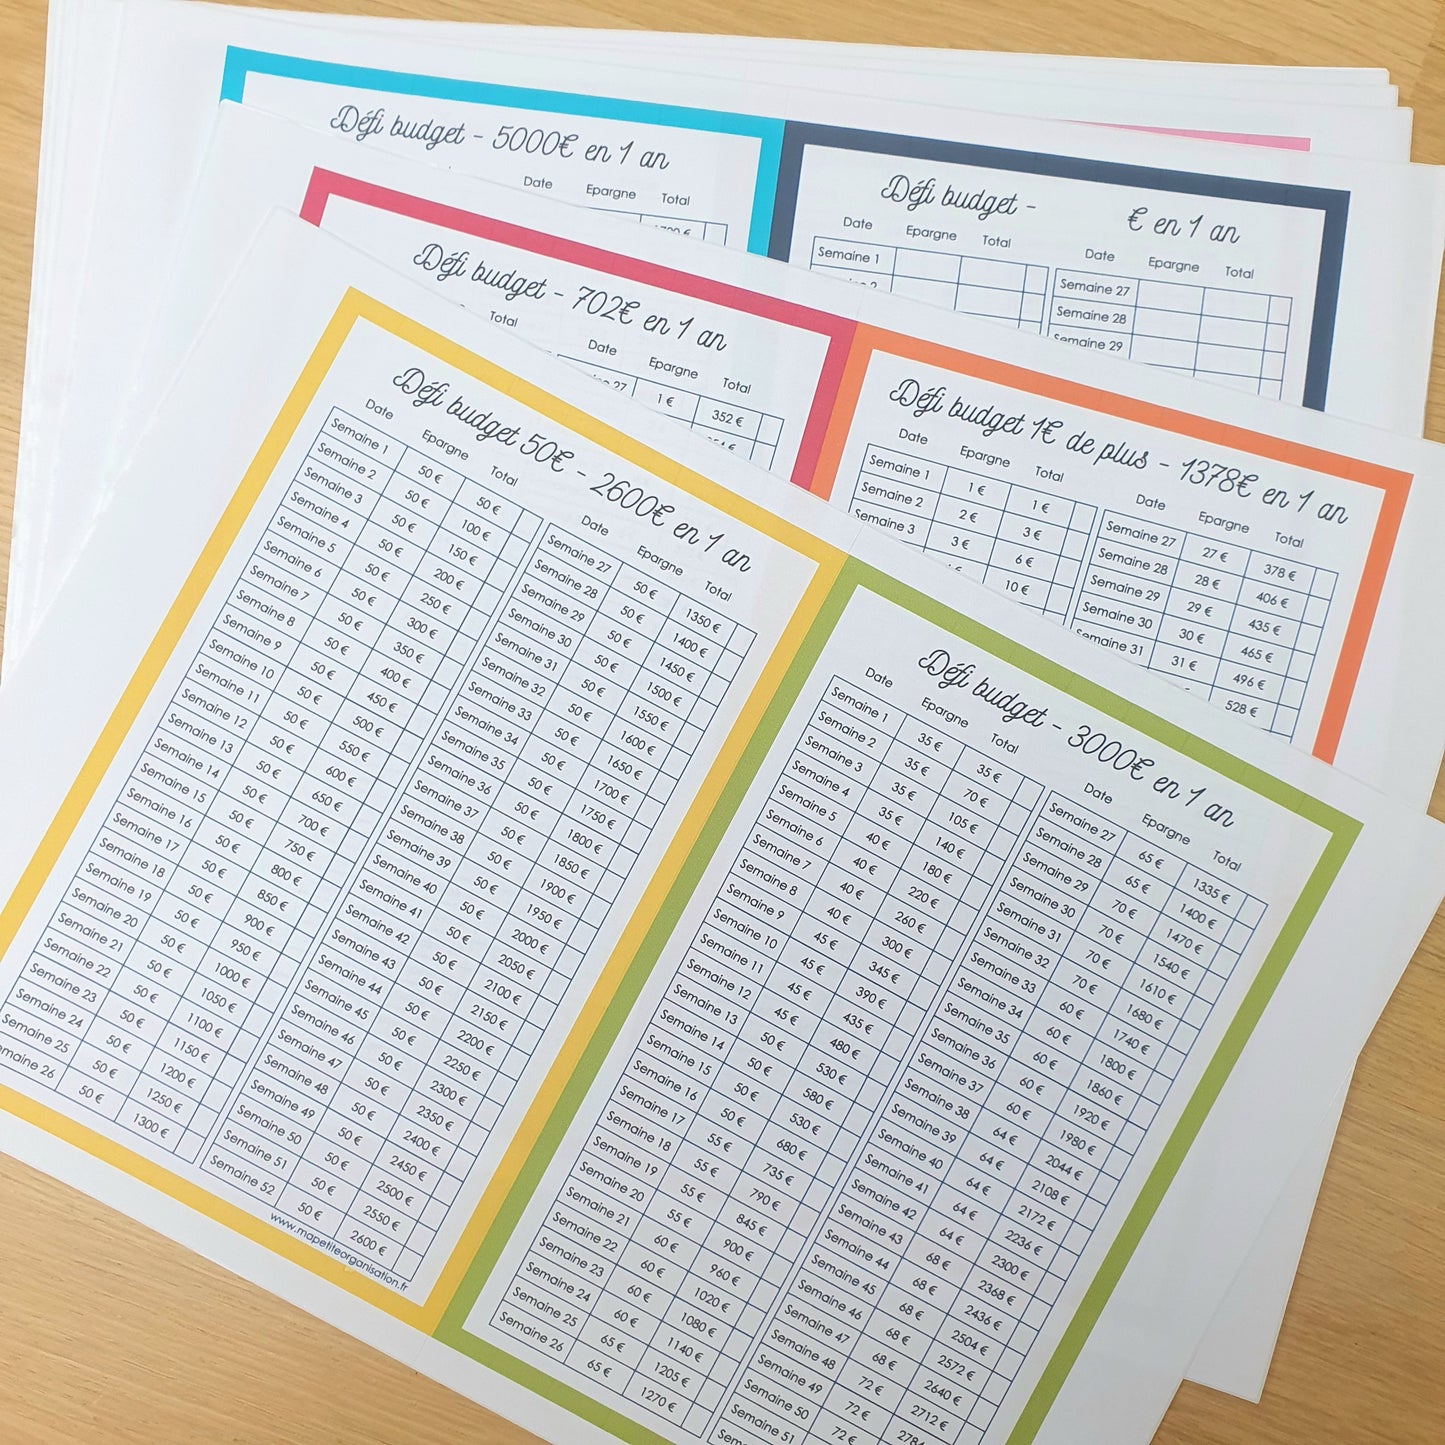 Défi budget - 5000€ en 1 an
Date Epargne Total
Défi budget - € en 1 an
Date Epargne Total
Semaine 1
Date Epargne Total
Semaine 27
Semaine 28
Semaine 29
Défi budget - 702€ en 1 an
Total
Date Epargne Total
1 € 352 €
Défi budget 1€ de plus - 1378€ en 1 an
Date Epargne Total
Semaine 1 1 € 1 €
Semaine 2 2 € 3 €
Semaine 3 3 € 6 €
10 €
Date Epargne Total
Semaine 27 27 € 378 €
Semaine 28 28 € 406 €
Semaine 29 29 € 435 €
Semaine 30 30 € 465 €
Semaine 31 31 € 496 €
528 €
Défi budget 50€ - 2600€ en 1 an
Date Epargne Total
Semaine 1 50 € 50 €
Semaine 2 50 € 100 €
Semaine 3 50 € 150 €
Semaine 4 50 € 200 €
Semaine 5 50 € 250 €
Semaine 6 50 € 300 €
Semaine 7 50 € 350 €
Semaine 8 50 € 400 €
Semaine 9 50 € 450 €
Semaine 10 50 € 500 €
Semaine 11 50 € 550 €
Semaine 12 50 € 600 €
Semaine 13 50 € 650 €
Semaine 14 50 € 700 €
Semaine 15 50 € 750 €
Semaine 16 50 € 800 €
Semaine 17 50 € 850 €
Semaine 18 50 € 900 €
Semaine 19 50 € 950 €
Semaine 20 50 € 1000 €
Semaine 21 50 € 1050 €
Semaine 22 50 € 1100 €
Semaine 23 50 € 1150 €
Semaine 24 50 € 1200 €
Semaine 25 50 € 1250 €
emaine 26 50 € 1300 €
Date Epargne Total
Semaine 27 50 € 1350 €
Semaine 28 50 € 1400 €
Semaine 29 50 € 1450 €
Semaine 30 50 € 1500 €
Semaine 31 50 € 1550 €
Semaine 32 50 € 1600 €
Semaine 33 50 € 1650 €
Semaine 34 50 € 1700 €
Semaine 35 50 € 1750 €
Semaine 36 50 € 1800 €
Semaine 37 50 € 1850 €
Semaine 38 50 € 1900 €
Semaine 39 50 € 1950 €
Semaine 40 50 € 2000 €
Semaine 41 50 € 2050 €
Semaine 42 50 € 2100 €
Semaine 43 50 € 2150 €
Semaine 44 50 € 2200 €
Semaine 45 50 € 2250 €
Semaine 46 50 € 2300 €
Semaine 47 50 € 2350 €
Semaine 48 50 € 2400 €
Semaine 49 50 € 2450 €
Semaine 50 50 € 2500 €
Semaine 51 50 € 2550 €
Semaine 52 50 € 2600 €
www.mapetiteorganisation.fr
Défi budget - 3000€ en 1 an
Date Epargne Total
Semaine 1 35 € 35 €
Semaine 2 35 € 70 €
Semaine 3 35 € 105 €
Semaine 4 35 € 140 €
Semaine 5 40 € 180 €
Semaine 6 40 € 220 €
Semaine 7 40 € 260 €
Semaine 8 40 € 300 €
Semaine 9 45 € 345 €
Semaine 10 45 € 390 €
Semaine 11 45 € 435 €
Semaine 12 45 € 480 €
Semaine 13 50 € 530 €
Semaine 14 50 € 580 €
Semaine 15 50 € 530 €
Semaine 16 50 € 680 €
Semaine 17 55 € 735 €
Semaine 18 55 € 790 €
Semaine 19 55 € 845 €
Semaine 20 55 € 900 €
Semaine 21 60 € 960 €
Semaine 22 60 € 1020 €
Semaine 23 60 € 1080 €
Semaine 24 60 € 1140 €
Semaine 25 65 € 1205 €
Semaine 26 65 € 1270 €
Date Epargne Total
Semaine 27 65 € 1335 €
Semaine 28 65 € 1400 €
Semaine 29 70 € 1470 €
Semaine 30 70 € 1540 €
Semaine 31 70 € 1610 €
Semaine 32 70 € 1680 €
Semaine 33 60 € 1740 €
Semaine 34 60 € 1800 €
Semaine 35 60 € 1860 €
Semaine 36 60 € 1920 €
Semaine 37 60 € 1980 €
Semaine 38 64 € 2044 €
Semaine 39 64 € 2108 €
Semaine 40 64 € 2172 €
Semaine 41 64 € 2236 €
Semaine 42 64 € 2300 €
Semaine 43 68 € 2368 €
Semaine 44 68 € 2436 €
Semaine 45 68 € 2504 €
Semaine 46 68 € 2572 €
Semaine 47 68 € 2640 €
Semaine 48 72 € 2712 €
Semaine 49 72 €
Semaine 50 72 €
Semaine 51